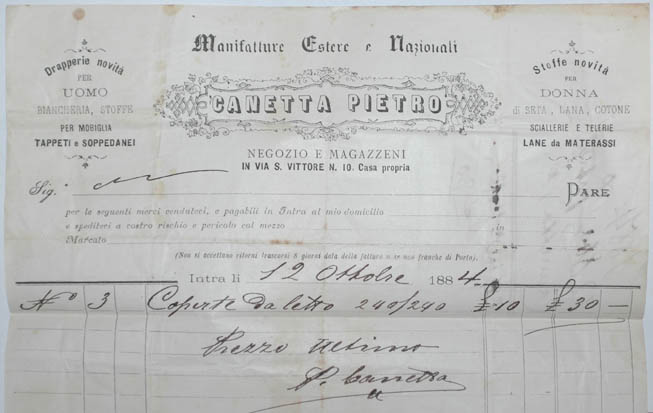 Manifatture Estere e Nazionali
Drapperie novità
PER
UOMO
BIANCHERIA, STOFFE
PER MOBIGLIA
TAPPETI e SOPPEDANEI
CANETTA PIETRO
Stoffe novità
PER
DONNA
di SETA, LANA, COTONE
SCIALLERIE E TELERIE
LANE da MATERASSI
NEGOZIO E MAGAZZENI
IN VIA S. VITTORE N. 10. Casa propria
Sig.
PARE
per le seguenti merci vendutevi, e pagabili in Intra al mio domicilio
e speditevi a vostro rischio e pericolo col mezzo
Marcato
(Non si accettano ritorni trascorsi 8 giorni dalla data della fattura e se non franche di Porto).
Intra li 12 Ottobre 1884
N° 3 Coperte da letto 240/240 £ 10 £ 30 —
Prezzo Ultimo
P. Canetta